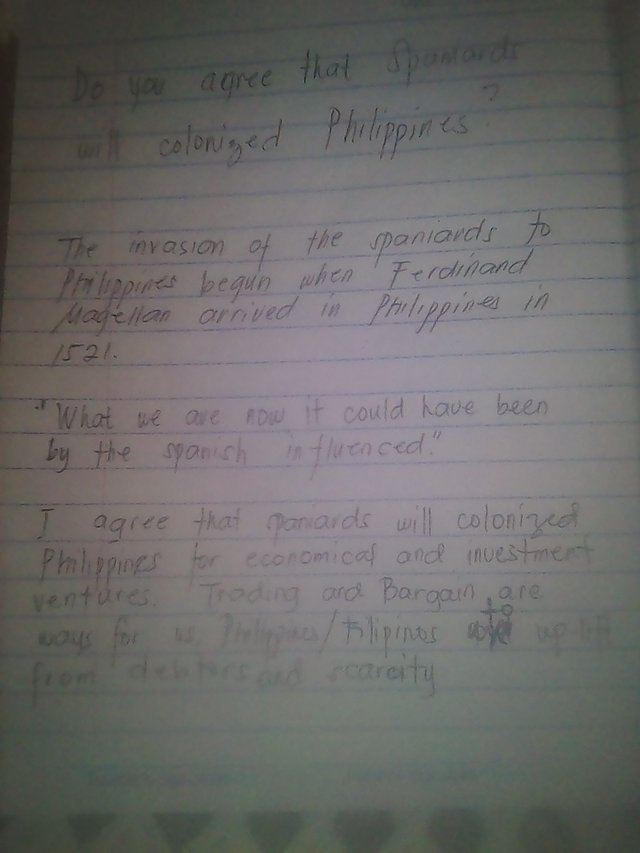 Do you agree that Spaniards
will colonized Philippines?
The invasion of the spaniards to
Philippines begun when Ferdinand
Magellan arrived in Philippines in
1521.
"What we are now it could have been
by the spanish influenced."
I agree that spaniards will colonized
Philippines for economical and investment
ventures. Trading and Bargain are
ways for us, Philippines/Filipinos to up lift
from debtors and scarcity